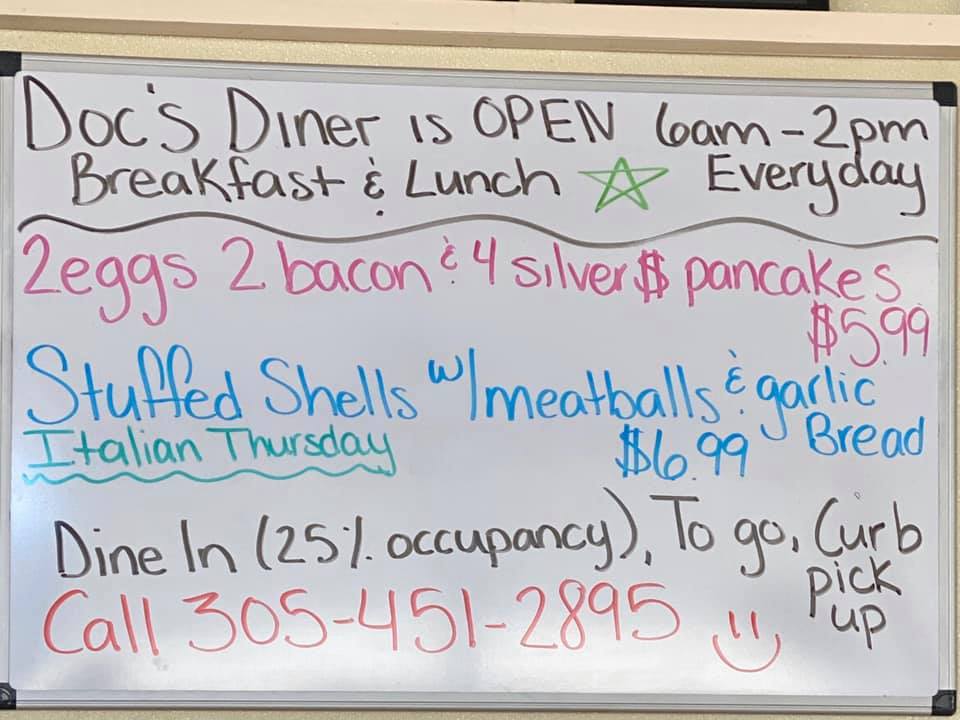 Doc's Diner is OPEN 6am-2pm
Breakfast & Lunch Everyday
2eggs 2 bacon & 4 silver$ pancakes
$5.99
Stuffed Shells w/meatballs & garlic
Italian Thursday $6.99 Bread
Dine In (25% occupancy), To go, Curb
pick
up
Call 305-451-2895